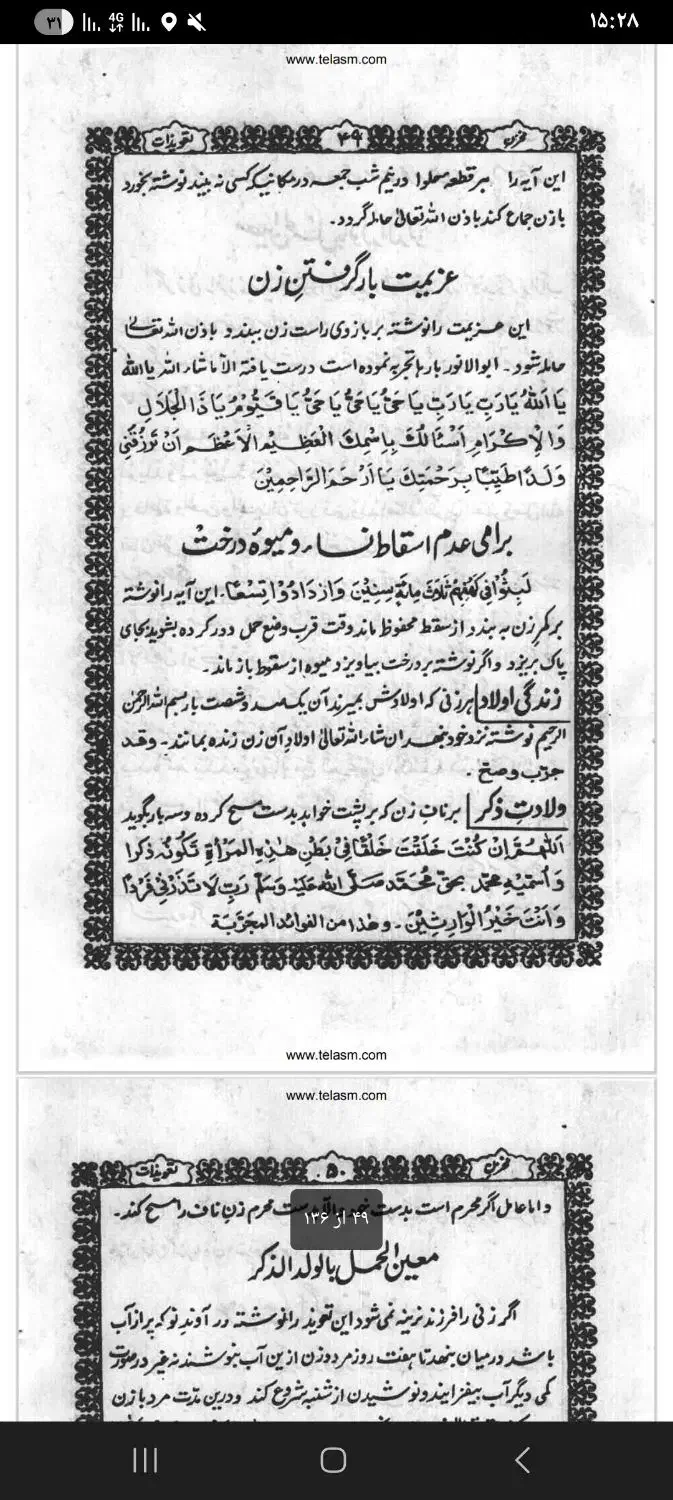 ۱۵:۲۸
4G
۳۱
www.telasm.com
مخزن
۴۹
تعویذات
این آیه را بر قطعه حلوا در نیم شب جمعه در مکانیکه کسی نه بیند نوشته بخورد
با زن جماع کند باذن الله تعالیٰ حامله گردد۔
عزیمت بار گرفتنِ زن
این عزیمت را نوشته بر بازوی راست زن ببندد باذن الله تعالیٰ
حامله شود۔ ابوالانور بارها تجربه نموده است درست یافته الا ماشاء الله یا الله
یَا اَللهُ یَارَبِّ یَارَبِّ یَا حَیُّ یَا حَیُّ یَا حَیُّ یَا قَیُّوْمُ یَا ذَا الْجَلَالِ
وَالْاِکْرَامِ اَسْئَالُكَ بِاِسْمِكَ الْعَظِیْمِ الْاَعْظَمِ اَنْ تَرْزُقَنِیْ
وَلَدًا طَیِّبًا بِرَحْمَتِكَ یَا اَرْحَمَ الرَّاحِمِیْنَ
برامی عدم اسقاط نساء و میوهٔ درخت
لَبِثُوْا فِیْ کَهْفِهِمْ ثَلَاثَ مِائَةٍ سِنِیْنَ وَازْدَادُوْا تِسْعًا۔ این آیه را نوشته
بر کمر زن به بندد از سقط محفوظ ماند وقت قرب وضع حمل دور کرده بشوید بجای
پاک بریزد و اگر نوشته بر درخت بیاویزد میوه از سقوط باز ماند۔
زندگی اولاد هر زنی که اولادش بمیرند آن یک صد و شصت بار بسم الله الرحمن
الرحیم نوشته نزد خود بنهد ان شاء الله تعالیٰ اولاد آن زن زنده بمانند۔ وقد
جرّب وصحّ۔
ولادتِ ذکر بر ناف زن که بر پشت خوابد بدست مسح کرده و سه بار بگوید
اَللّٰهُمَّ اِنْ کُنْتَ خَلَقْتَ خَلْقًا فِیْ بَطْنِ هٰذِهِ الْمَرْأَةِ تَکُوْنُه ذکرا
وَاُسَمِّیْهِ محمّد بحقّ مُحَمَّد صَلَّی اللهُ عَلَیْهِ وَسَلَّمْ رَبِّ لَا تَذَرْنِیْ فَرْدًا
وَاَنْتَ خَیْرُ الْوَارِثِیْنَ۔ وهٰذا من الفوائد المجرّبة
www.telasm.com
www.telasm.com
مخزن
۵۰
تعویذات
و اما عامل اگر محرم است بدست خود والّا بدست محرم زن ناف را مسح کند۔
۴۹ از ۱۳۶
معین الحمل بالولد الذکر
اگر زنی را فرزند نرینه نمی شود این تعویذ را نوشته در آوند نو که پر از آب
باشد در میان بنهد تا هفت روز مرد و زن ازین آب بنوشند نه غیر در صورت
کمی دیگر آب بیفزایند و نوشیدن از شنبه شروع کند و درین مدّت مرد با زن